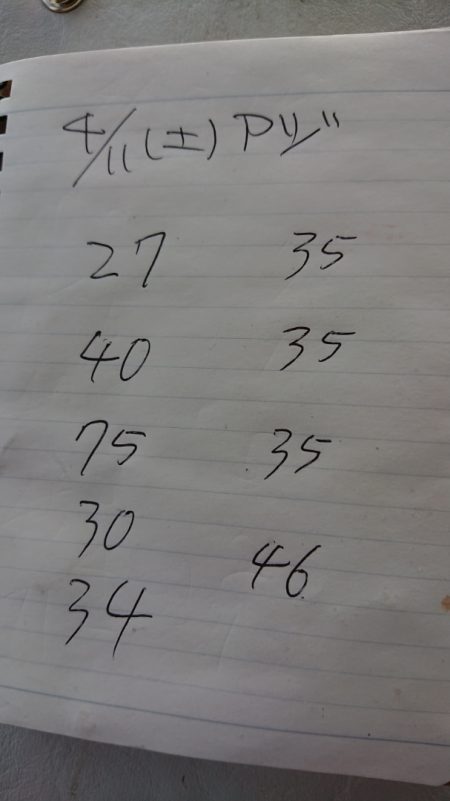 4/11(土) アジ
27 35
40 35
75 35
30
46
34